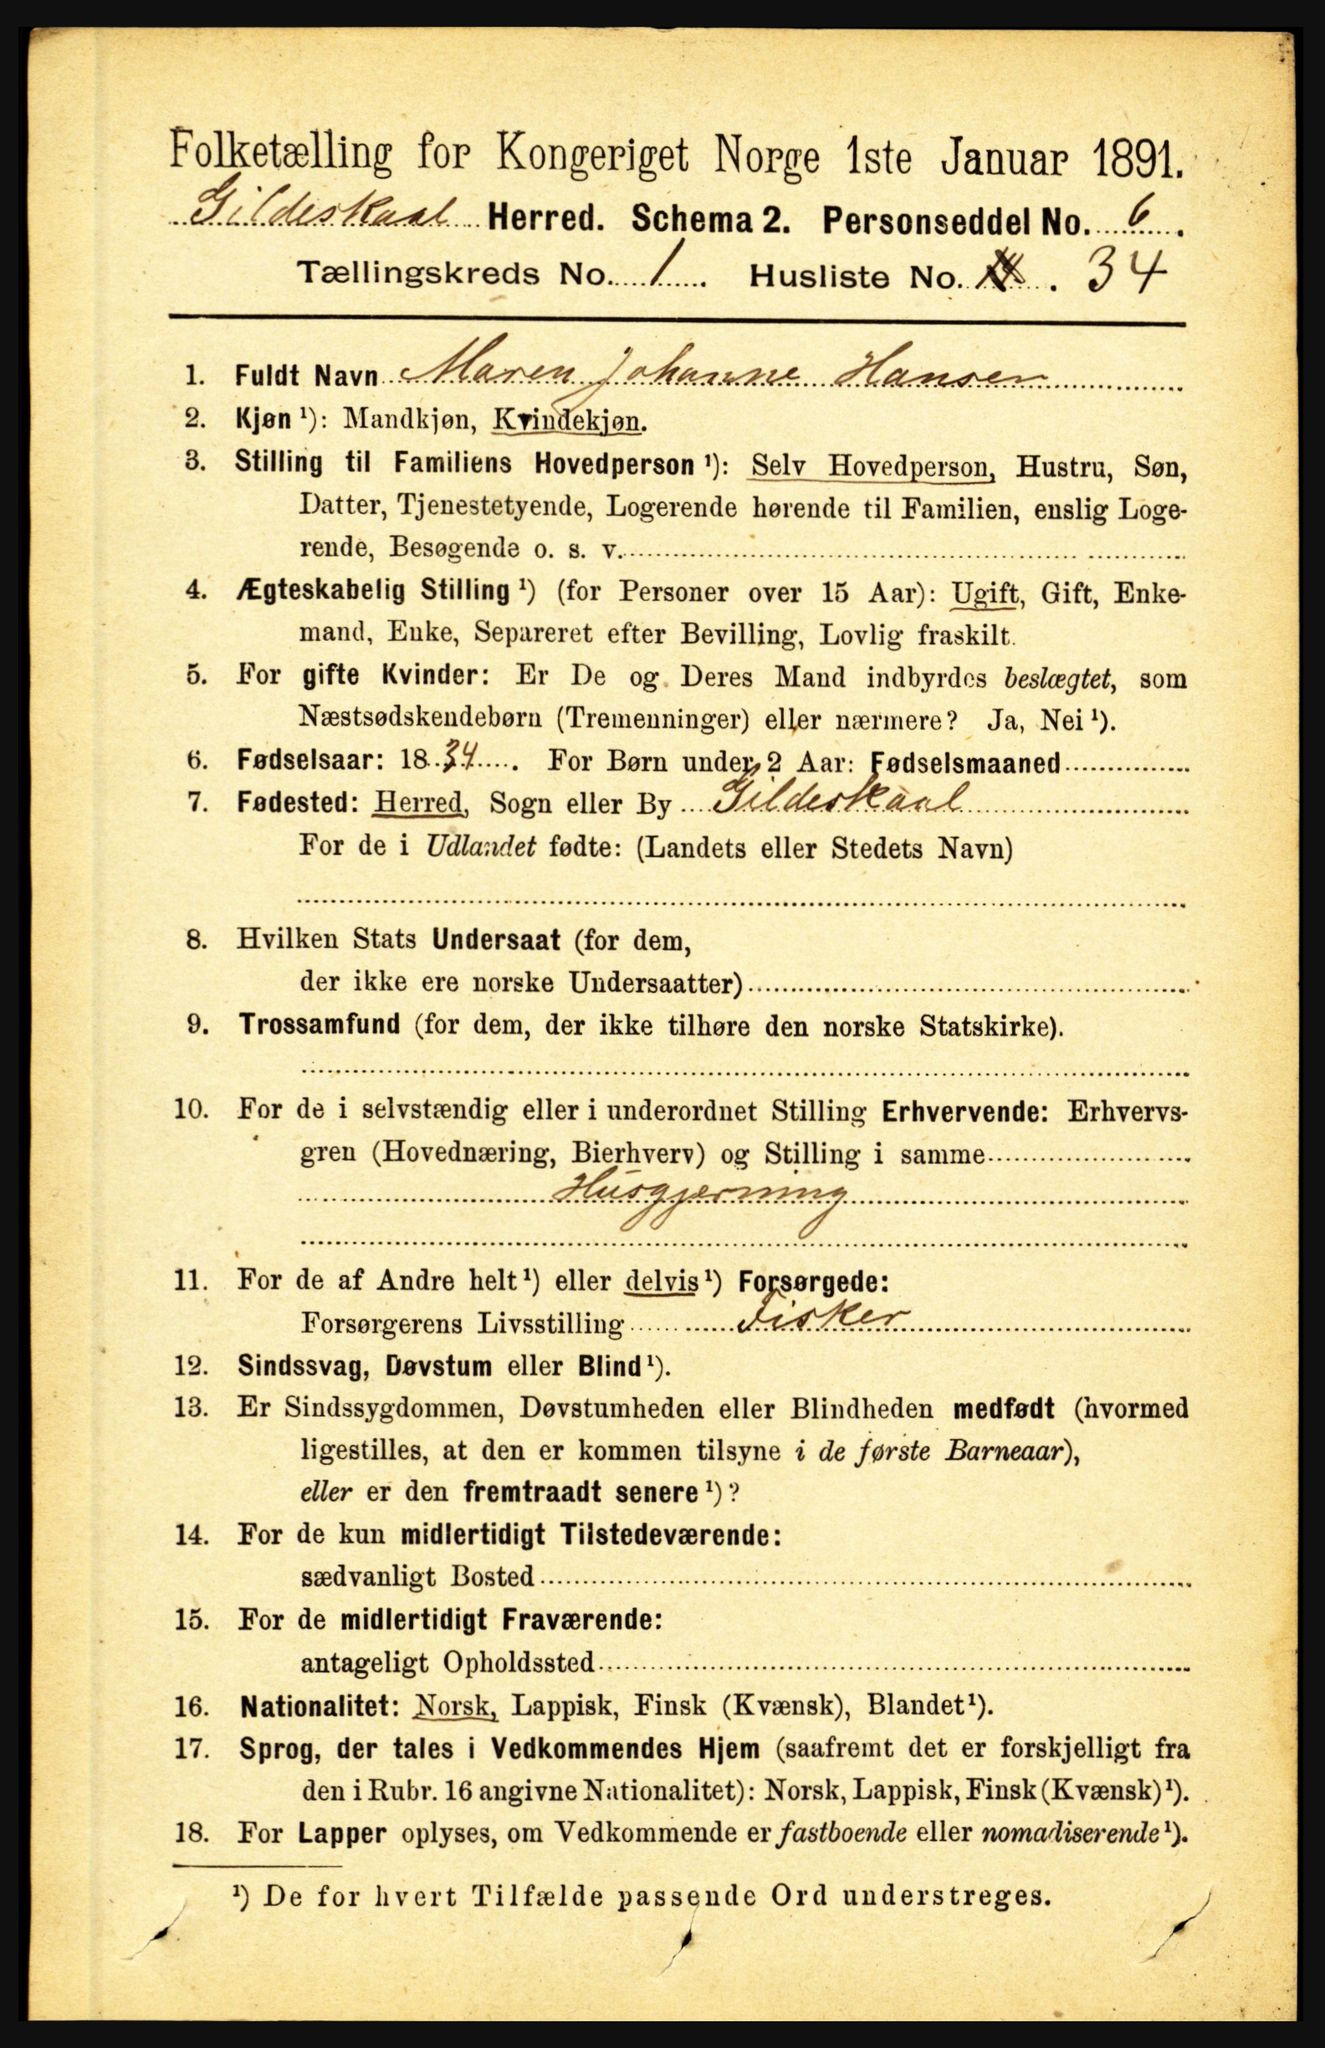 Folketælling for Kongeriget Norge 1ste Januar 1891.
Gildeskaal Herred. Schema 2. Personseddel No. 6.
Tællingskreds No. 1. Husliste No. . 34
1. Fuldt Navn Maren Johanne Hansen
2. Kjøn ¹): Mandkjøn, Kvindekjøn.
3. Stilling til Familiens Hovedperson ¹): Selv Hovedperson, Hustru, Søn,
Datter, Tjenestetyende, Logerende hørende til Familien, enslig Loge-
rende, Besøgende o. s. v.
4. Ægteskabelig Stilling ¹) (for Personer over 15 Aar): Ugift, Gift, Enke-
mand, Enke, Separeret efter Bevilling, Lovlig fraskilt.
5. For gifte Kvinder: Er De og Deres Mand indbyrdes beslægtet, som
Næstsødskendebørn (Tremenninger) eller nærmere? Ja, Nei ¹).
6. Fødselsaar: 1834. For Børn under 2 Aar: Fødselsmaaned
7. Fødested: Herred, Sogn eller By Gildeskaal
For de i Udlandet fødte: (Landets eller Stedets Navn)
8. Hvilken Stats Undersaat (for dem,
der ikke ere norske Undersaatter)
9. Trossamfund (for dem, der ikke tilhøre den norske Statskirke).
10. For de i selvstændig eller i underordnet Stilling Erhvervende: Erhvervs-
gren (Hovednæring, Bierhverv) og Stilling i samme
Husgjerning
11. For de af Andre helt ¹) eller delvis ¹) Forsørgede:
Forsørgerens Livsstilling Fisker
12. Sindssvag, Døvstum eller Blind ¹).
13. Er Sindssygdommen, Døvstumheden eller Blindheden medfødt (hvormed
ligestilles, at den er kommen tilsyne i de første Barneaar),
eller er den fremtraadt senere ¹)?
14. For de kun midlertidigt Tilstedeværende:
sædvanligt Bosted
15. For de midlertidigt Fraværende:
antageligt Opholdssted
16. Nationalitet: Norsk, Lappisk, Finsk (Kvænsk), Blandet ¹).
17. Sprog, der tales i Vedkommendes Hjem (saafremt det er forskjelligt fra
den i Rubr. 16 angivne Nationalitet): Norsk, Lappisk, Finsk (Kvænsk) ¹).
18. For Lapper oplyses, om Vedkommende er fastboende eller nomadiserende ¹).
¹) De for hvert Tilfælde passende Ord understreges.